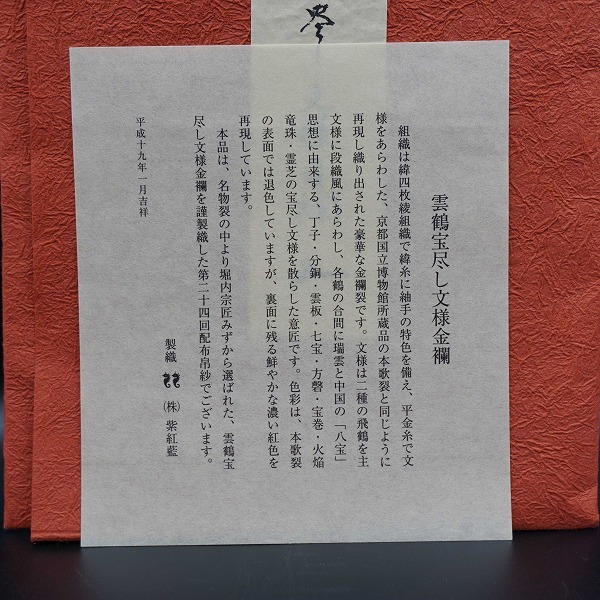 雲鶴宝尽し文様金襴
組織は緯四枚綾組織で緯糸に紬手の特色を備え、平金糸で文
様をあらわした、京都国立博物館所蔵品の本歌裂と同じように
再現し織り出された豪華な金襴裂です。文様は二種の飛鶴を主
文様に段織風にあらわし、各鶴の合間に瑞雲と中国の「八宝」
思想に由来する、丁子・分銅・雲板・七宝・方磬・宝巻・火焔
竜珠・霊芝の宝尽し文様を散らした意匠です。色彩は、本歌裂
の表面では退色していますが、裏面に残る鮮やかな濃い紅色を
再現しています。
本品は、名物裂の中より堀内宗匠みずから選ばれた、雲鶴宝
尽し文様金襴を謹製織した第二十四回配布帛紗でございます。
平成十九年一月吉祥
製織 (株)紫紅藍